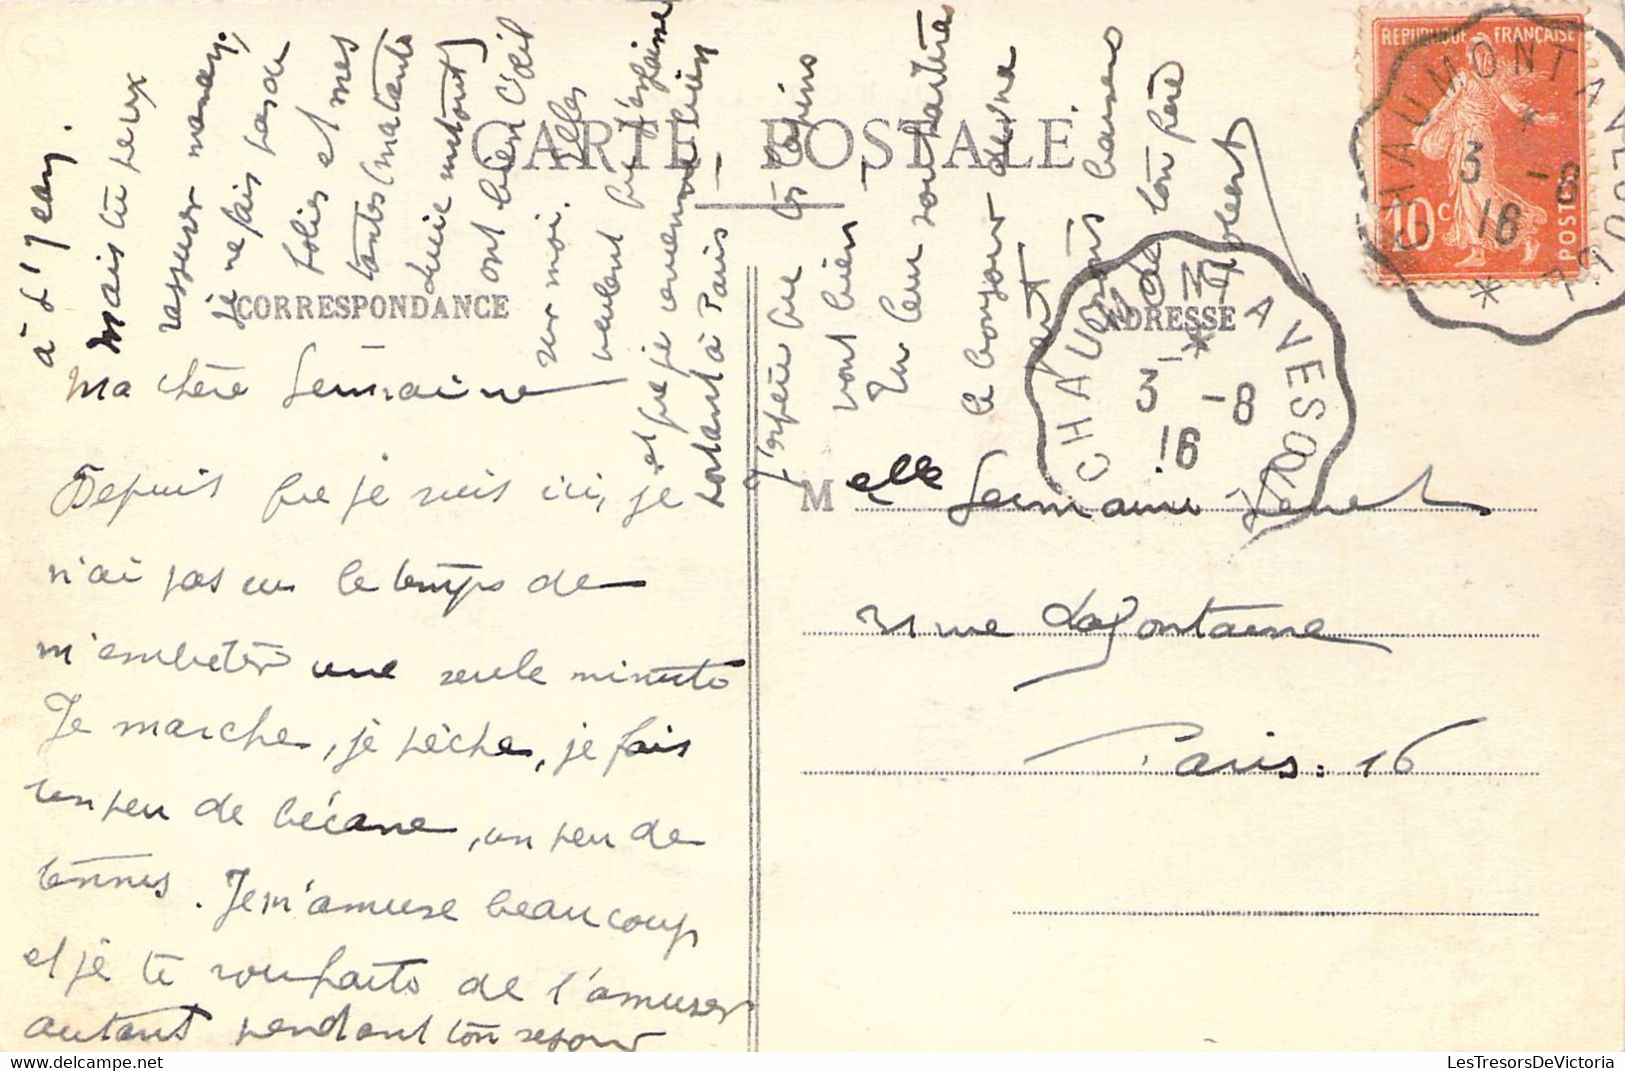 CARTE POSTALE
CORRESPONDANCE
ADRESSE
REPUBLIQUE FRANÇAISE
10c
POSTES
CHAUMONT A VESOUL
3 - 8
16
CHAUMONT A VESOUL
3 - 8
16
Ma chère Germaine
Depuis que je suis ici, je
n'ai pas eu le temps de
m'embêter une seule minute
Je marche, je pêche, je fais
un peu de bécane, un peu de
tennis. Je m'amuse beaucoup
et je te souhaite de t'amuser
autant pendant ton séjour
à St Jean.
Mais tu peux
rassurer maman,
je ne fais pas de
folies et mes
tantes (ma tante
surtout)
ont bien l'œil
sur moi. Elles
veulent que j'engraisse
et que je
partant à Paris
J'espère que les lapins
vont bien.
Tu leur souhaiteras
le bonjour de ma
part
bons baisers
de ton frère
Robert
Melle Germaine
rue Lafontaine
Paris. 16
LesTresorsDeVictoria